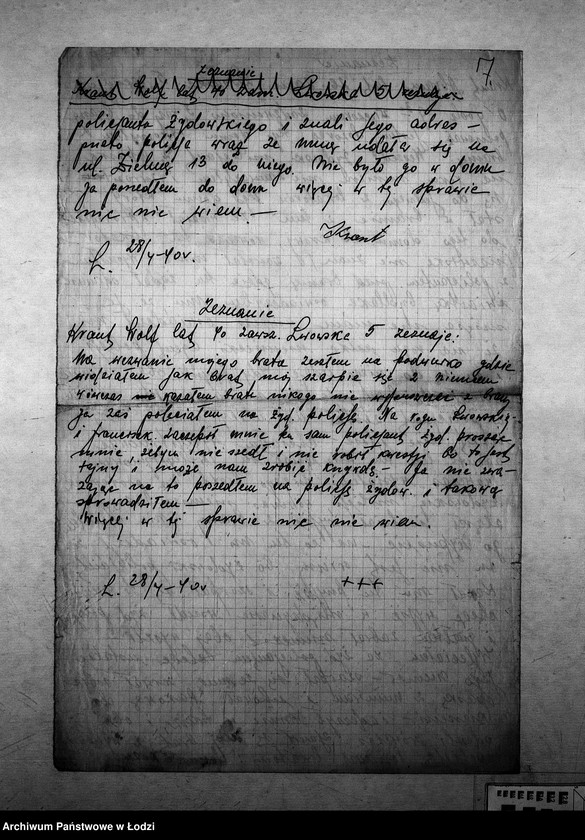 7.
Zeznanie
Kraut Wolf lat 40 zam. Lwowska 5 zeznaje
policjanta żydowskiego i znali jego adres –
policja wraz ze mną udała się na
ul. Zielną 13 do niego. Nie było go w domu
ja poszedłem do domu więcej w tej sprawie
nic nie wiem. –
Kraut
Ł. 28/4-40r.
Zeznanie
Kraut Wolf lat 40 zam. Lwowska 5 zeznaje:
Na wezwanie mojego brata zeszłem na podwurko gdzie
widziałem jak brat mój szarpie się z niemcem
wówczas kazałem bratu nikogo nie wpuszczać z bramy
ja zaś poleciałem na żyd. policję. Na rogu Lwowskiej
i francisk. zaczepił mnie ten sam policjant żyd. prosząc
mnie, żebym nie szedł i nie robił kwestji bo to jest
tajny i może nam zrobić krzywdę – ja nie zwa-
żając na to poszedłem na policję żydow. i takową
sprowadziłem –
Więcej w tej sprawie nic nie wiem.
Ł. 28/4-40r
+++
Archiwum Państwowe w Łodzi